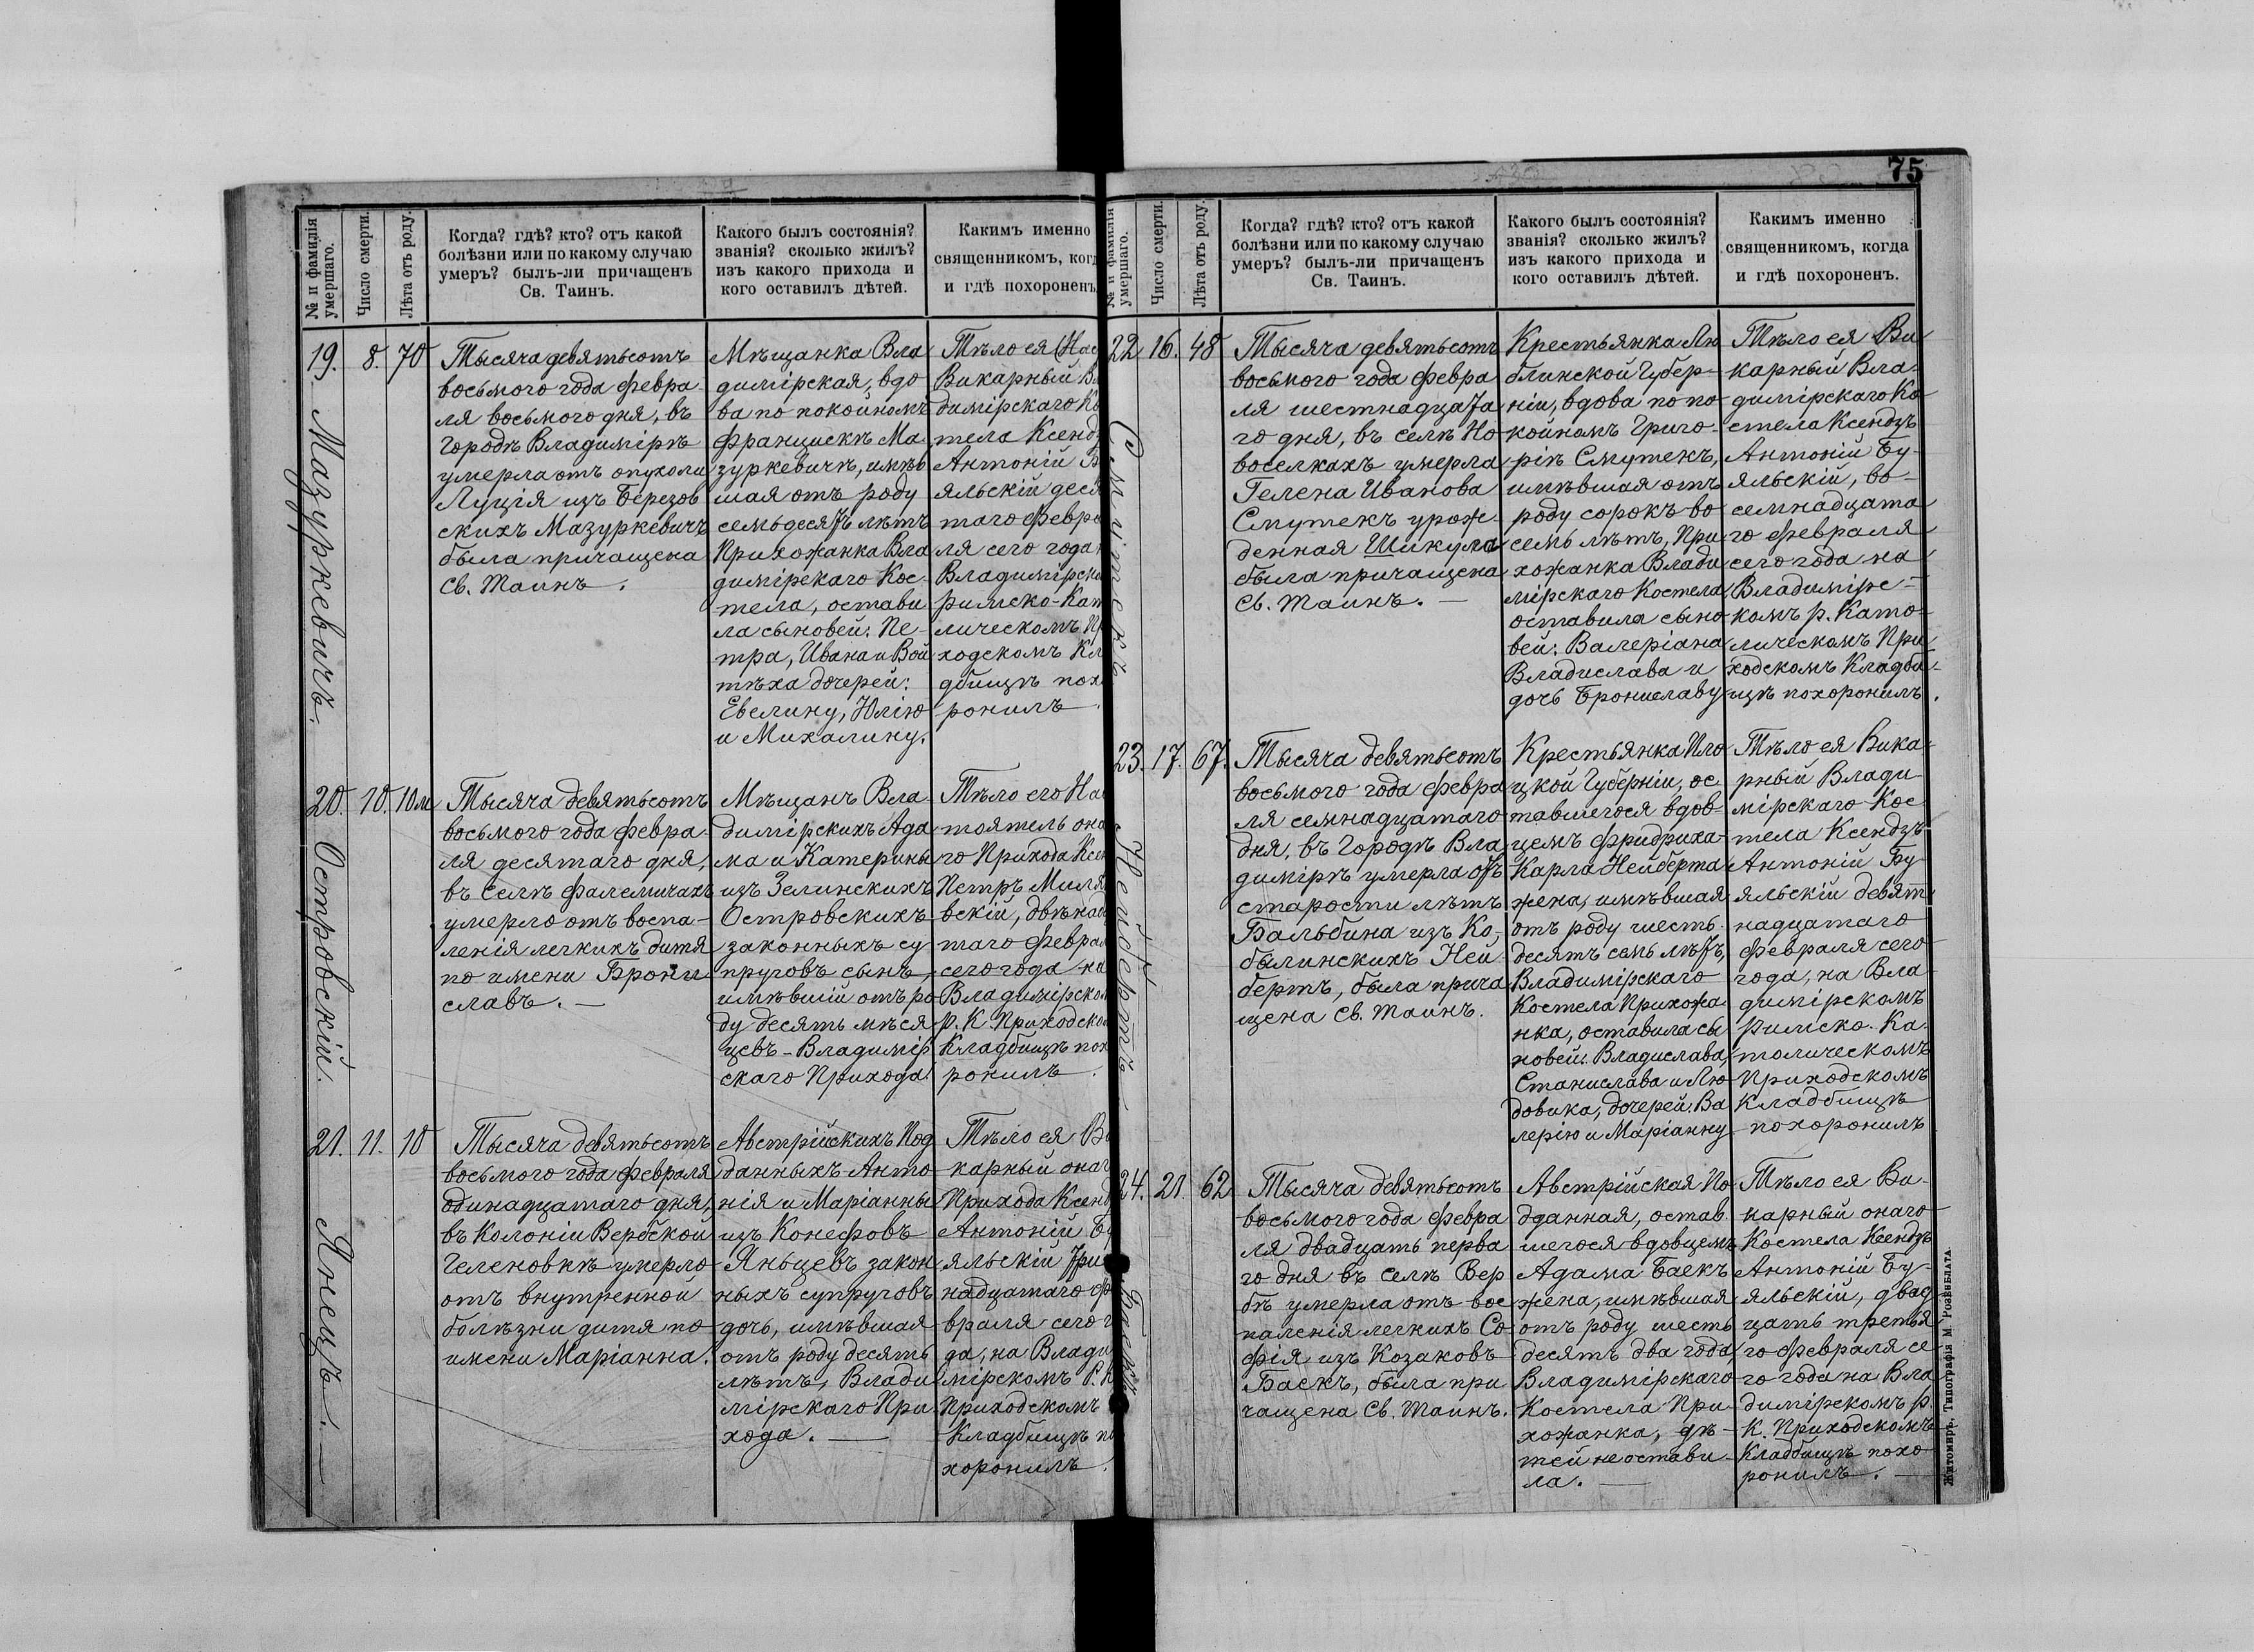 75
№ и фамилія
умершаго.
Число смерти.
Лѣта отъ роду.
Когда? гдѣ? кто? отъ какой
болѣзни или по какому случаю
умеръ? былъ-ли причащенъ
Св. Таинъ.
Какого былъ состоянія?
званія? сколько жилъ?
изъ какого прихода и
кого оставилъ дѣтей.
Каким именно
священникомъ, когд
и гдѣ похоронен
19.
Мазуркевичъ.
8.
70
Тысяча девятьсотъ
восьмого года февра-
ля восьмого дня, въ
Городѣ Владимірѣ
умерла отъ опухоли
Луція изъ Березов
скихъ Мазуркевичъ
была причащена
Св. Таинъ.
Мѣщанка Вла
димірская, вдо
ва по покойномъ
Францискѣ Ма
зуркевичѣ, имѣв
шая отъ роду
семьдесятъ лѣтъ
Прихожанка Вла
димірскаго Кос-
тела, остави
ла сыновей: Пе-
тра, Ивана и Вой
тѣха дочерей:
Евелину, Юлію
и Михалину.
Тѣло ея
Викарный Вл
димірскаго Ко
тела Ксендз
Антоній Б
яльскій деся
таго февра
ля сего года н
Владимірско
римско-Кат
лическомъ Пр
ходскомъ Кл
дбищѣ похо
ронилъ.
20.
Островскій.
10.
10 м
Тысяча девятьсотъ
восьмого года февра-
ля десятаго дня,
въ Селѣ Фалемичахъ
умерло отъ воспа-
ленія легкихъ дитя
по имени Брони
славъ. —
Мѣщанъ Вла-
димірскихъ Ада
ма и Катерины
изъ Зелинскихъ
Островскихъ
законныхъ су
пруговъ сынъ,
имѣвшій отъ ро
ду десять мѣся
цевъ - Владимір
скаго Прихода.
Тѣло его На
тоятель она
го Прихода Ксен
Петръ Миля
вскій, двѣнад
таго феврал
сего года на
Владимірском
р. К Приходском
Кладбищѣ пох
ронилъ.
21.
Янецъ. —
11.
10
Тысяча девятьсотъ
восьмого года февраля
одинадцатаго дня,
въ Колоніи Вербской
Челеновкѣ умерло
отъ внутренной
болѣзни дитя по
имени Маріанна.
Австрійскихъ Под
данныхъ Анто
нія и Маріанны
изъ Конефовъ
Яньцевъ закон
ныхъ супруговъ
дочь, имѣвшая
отъ роду десять
лѣтъ, Влади
мірскаго При
хода. —
Тѣло ея Ви
карный онаг
Прихода Ксенд
Антоній Бу
яльскій три
надцатаго фе
враля сего г
да, на Влади
мірскомъ Р. К
Приходскомъ
Кладбищѣ по
хоронилъ.
№ и фамилія
умершаго.
Число смерти.
Лѣта отъ роду.
Когда? гдѣ? кто? отъ какой
болѣзни или по какому случаю
умеръ? былъ-ли причащенъ
Св. Таинъ.
Какого былъ состоянія?
званія? сколько жилъ?
изъ какого прихода и
кого оставилъ дѣтей.
Какимъ именно
священникомъ, когда
и гдѣ похороненъ.
22
Смутекъ
16.
48
Тысяча девятьсотъ
восьмого года февра
ля шестнадцата
го дня, въ селѣ Но
воселкахъ умерла
Гелена Иванова
Смутекъ урож-
денная Шикула
была причащена
Св. Таинъ. —
Крестьянка Лю
блинской Губер-
ніи, вдова по по
койномъ Григо-
ріѣ Смутекъ,
имѣвшая отъ
роду сорокъ во
семь лѣтъ, При
хожанка Влади
мірскаго Костела,
оставила сыно
вей: Валеріана
Владислава и
дочь Брониславу
Тѣло ея Ви
карный Вла-
димірскаго Ко
стела Ксендзъ
Антоній Бу-
яльскій, во-
семнадцата
го февраля
сего года на
Владимірс-
комъ р. Като-
лическомъ При
ходскомъ Кладби-
щѣ похоронилъ.
23.
Нейбертъ
17.
67.
Тысяча девятьсотъ
восьмого года февра
ля семнадцатаго
дня, въ Городѣ Вла
димірѣ умерла отъ
старости лѣтъ
Бальбина изъ Ко-
былинскихъ Ней
бертъ, была прича
щена Св. Таинъ.
Крестьянка Пло
цкой Губерніи, ос
тавшегося вдов-
цемъ Фридриха-
Карла Нейберта
жена, имѣвшая
отъ роду шесть
десятъ семь лѣтъ,
Владимірскаго
Костела Прихожа
нка, оставила сы
новей: Владислава,
Станислава и Лю
довика, дочерей: Ва
лерію и Маріанну
Тѣло ея Вика-
рный Влади-
мірскаго Кос
тела Ксендзъ
Антоній Бу-
яльскій девят
надцатаго
февраля сего
года, на Вла
димірскомъ
Римско-Ка-
толическомъ
Приходскомъ
Кладбищѣ
похоронилъ
24.
Баекъ
21.
62
Тысяча девятьсотъ
восьмого года февра
ля двадцать перва
го дня въ селѣ Вер
бѣ умерла отъ вос
паленія легкихъ Со
фія изъ Козаковъ
Баекъ, была при
чащена Св. Таинъ.
Австрійская По
дданная, остав
шегося вдовцемъ
Адама Баекъ
жена, имѣвшая
отъ роду шесть
десятъ два года,
Владимірскаго
Костела При-
хожанка, дѣ-
тей не остави-
ла. —
Тѣло ея Ви-
карный онаго
Костела Ксендзъ
Антоній Бу-
яльскій, двад
цать третья
го февраля се
го года на Вла
димірскомъ р.
К. Приходскомъ
Кладбищѣ похо
ронилъ. —
Житомиръ, Типографія М. Розенблата.